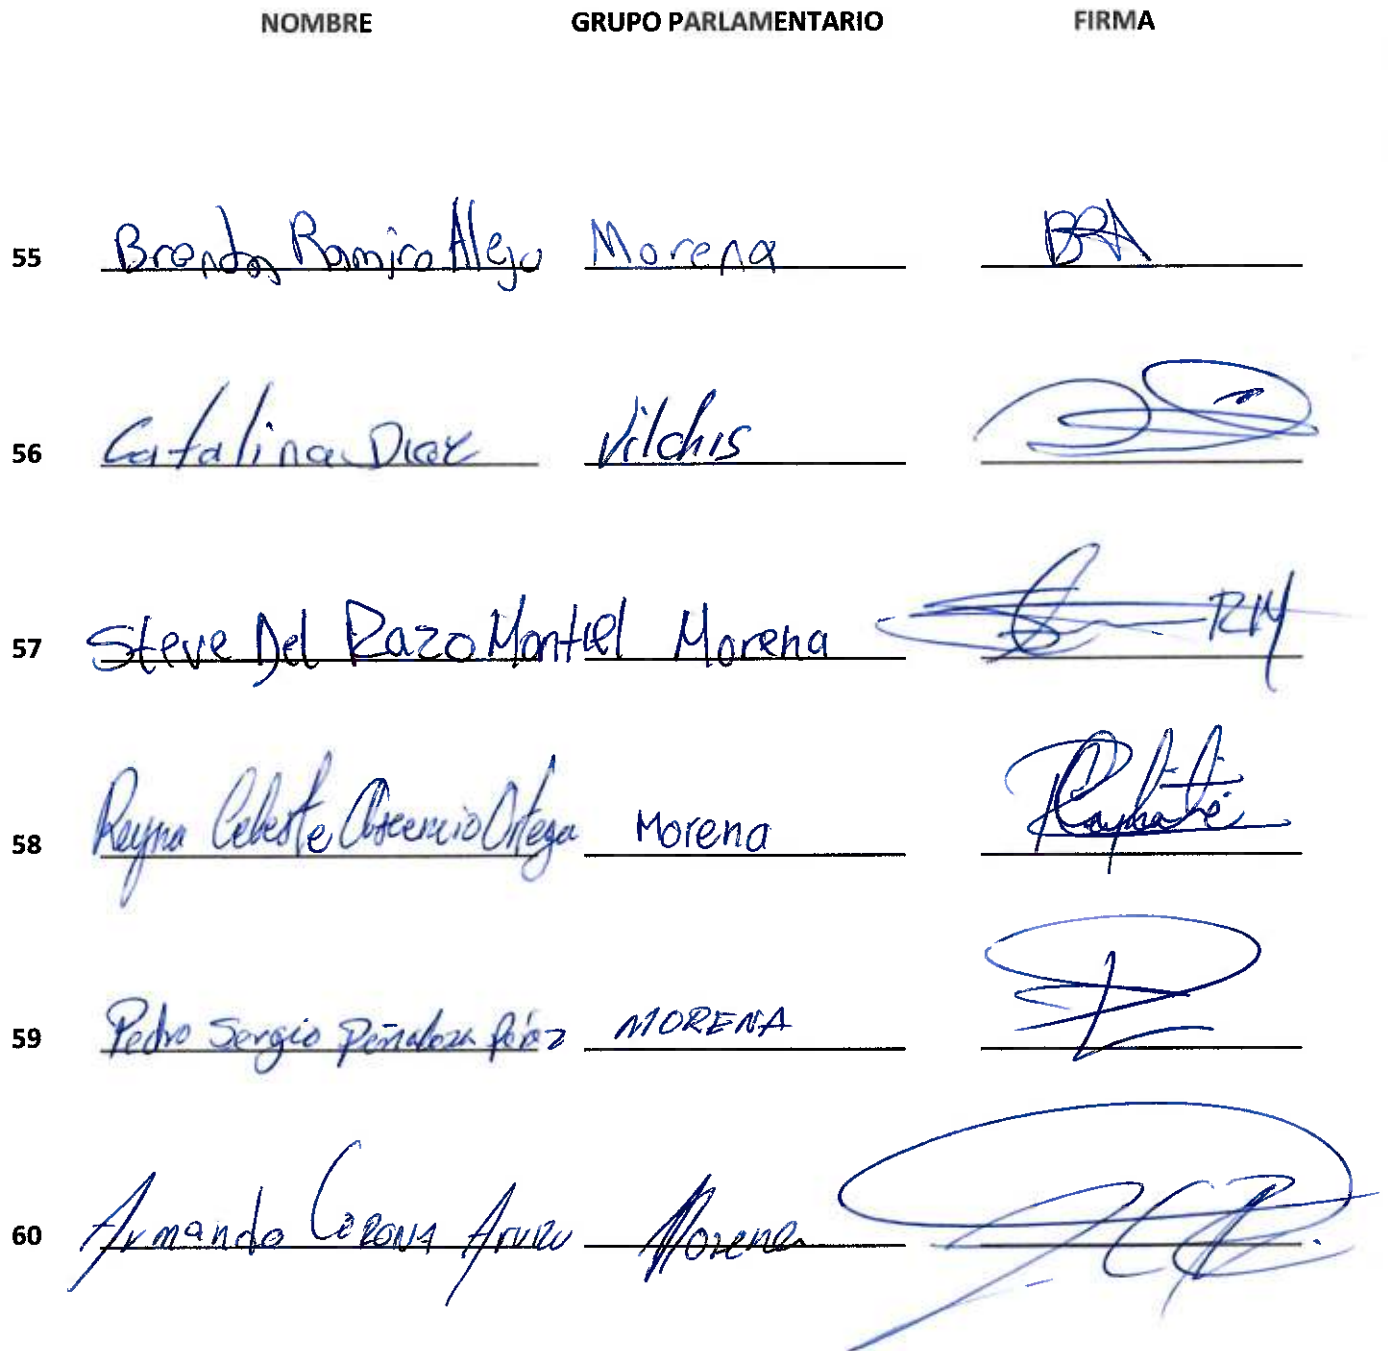 NOMBRE GRUPO PARLAMENTARIO FIRMA
55 Brenda Ramiro Alejo Morena BRA
56 Catalina Diaz Vilchis
57 Steve Del Razo Montiel Morena RM
58 Reyna Celeste Ascencio Ortega Morena
59 Pedro Sergio Peñaloza Pérez MORENA
60 Armando Corona Morena